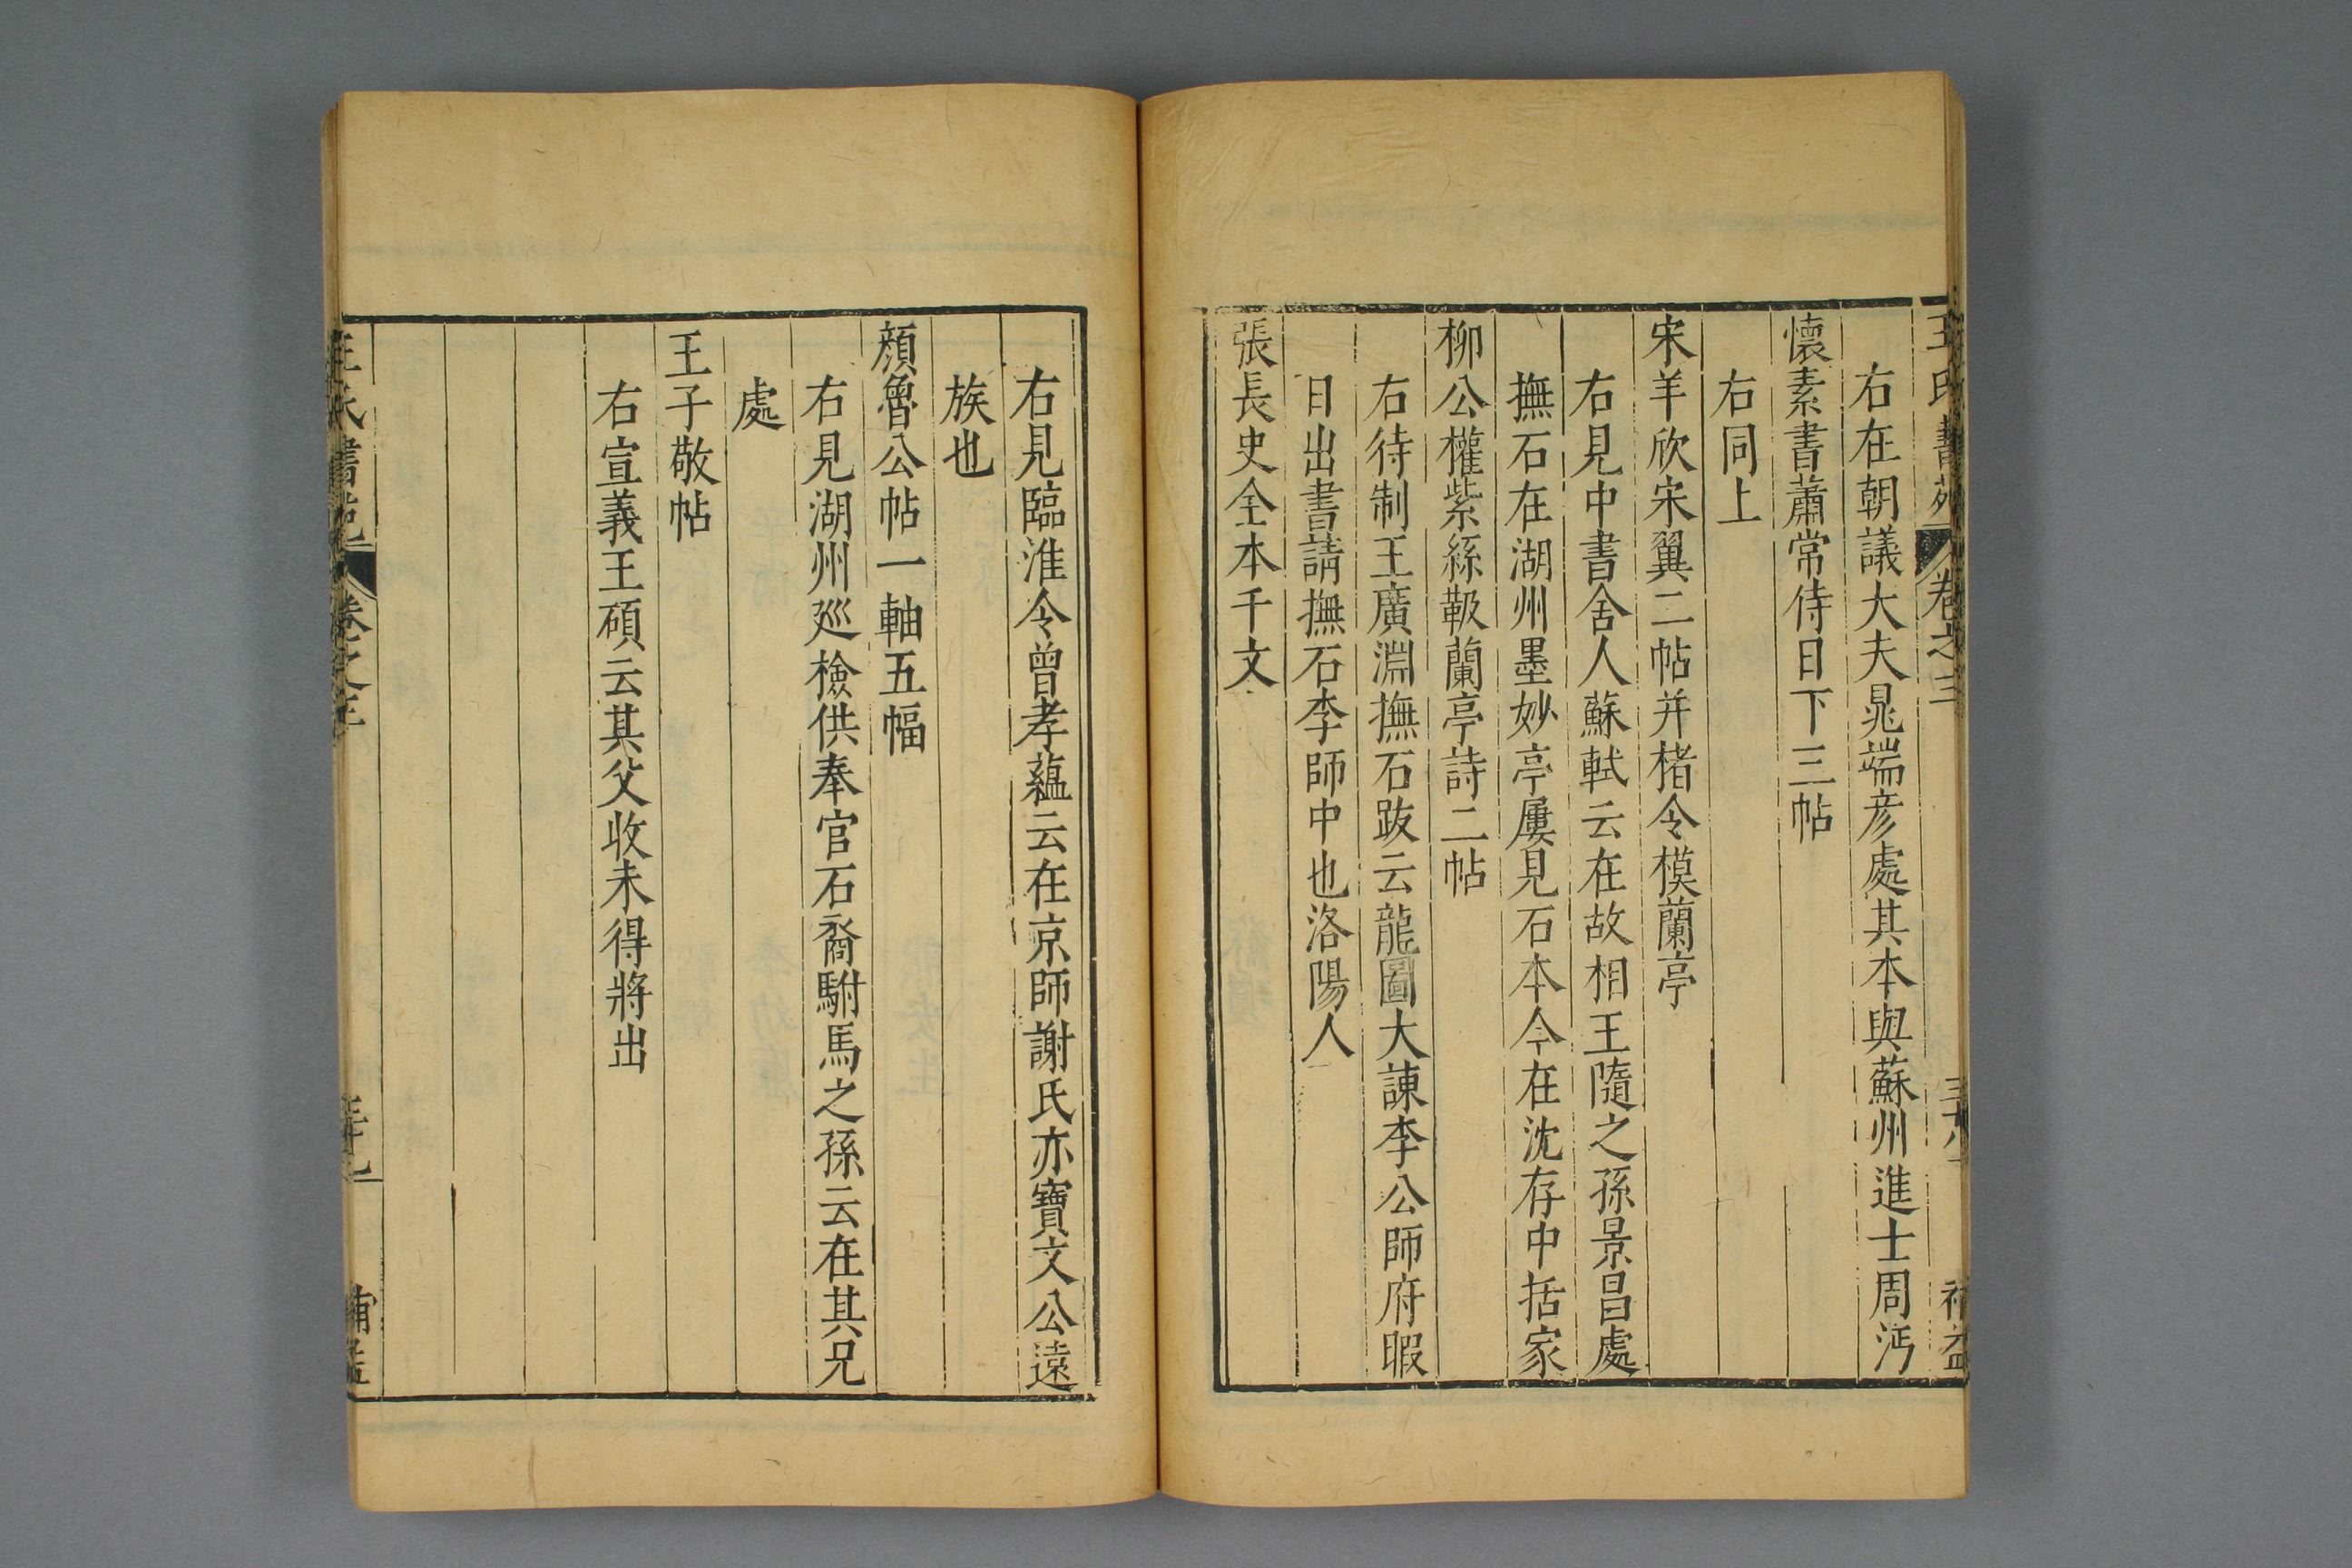 王氏書苑 卷之三 三十八 補益
右在朝議大夫晁端彦處其本與蘇州進士周沔
懷素書蕭常侍日下三帖
右同上
宋羊欣宋翼二帖并楮令模蘭亭
右見中書舍人蘇軾云在故相王隨之孫景昌處
撫石在湖州墨妙亭屢見石本今在沈存中括家
柳公權紫絲靸蘭亭詩二帖
右待制王廣淵撫石跋云龍圖大諫李公師府暇
日出書請撫石李師中也洛陽人
張長史全本千文
右見臨淮令曾孝蘊云在京師謝氏亦寶文公遠
族也
顏魯公帖一軸五幅
右見湖州廵檢供奉官石裔駙馬之孫云在其兄
處
王子敬帖
右宣義王碩云其父收未得將出
王氏書苑 卷之三